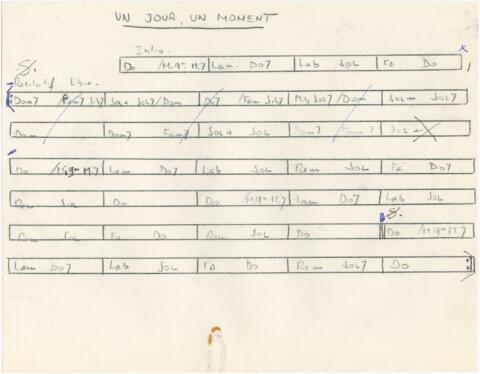 UN JOUR, UN MOMENT
Intro.
Do /Mi9- Mi7 Lam Do7 Lab SOL FA Do
Recitatif Libre
Dom7 /Fam7 Sib7 SOL+ SOL7/Dom /Fam Sib7 Mib SOL7/Dom SOL+ SOL7
Dom Dom7 Fam7 SOL4 SOL Dom7 /Fam7 SOL+
Do /Mi9- Mi7 Lam Do7 Lab SOL Rem SOL FA Do7
Rem SOL Do Do /Mi9- Mi7 Lam Do7 Lab SOL
Rem SOL FA Do Rem SOL Do Do /Mi9- Mi7
Lam Do7 Lab SOL FA Do Rem SOL7 Do